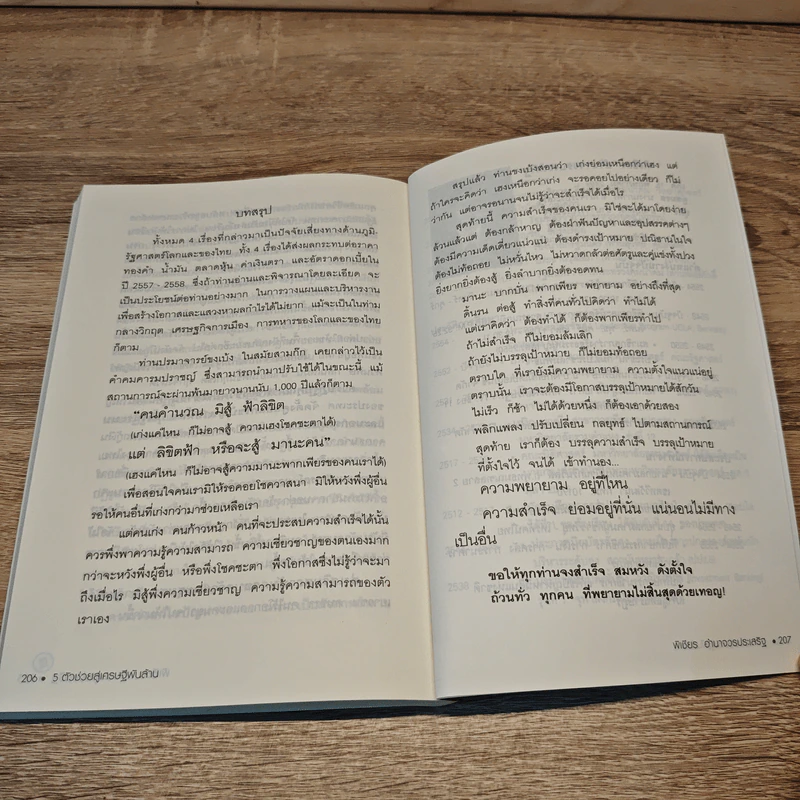 บทสรุป
ทั้งหมด 4 เรื่องที่กล่าวมาเป็นปัจจัยเสี่ยงทางด้านภูมิ-
รัฐศาสตร์โลกและของไทย ทั้ง 4 เรื่องได้ส่งผลกระทบต่อราคา
ทองคำ น้ำมัน ตลาดหุ้น ค่าเงินตรา และอัตราดอกเบี้ยใน
ปี 2557 - 2558 ซึ่งถ้าท่านอ่านและพิจารณาโดยละเอียด จะ
เป็นประโยชน์ต่อท่านอย่างมาก ในการวางแผนและบริหารงาน
เพื่อสร้างโอกาสและแสวงหาผลกำไรได้ไม่ยาก แม้จะเป็นในท่าม
กลางวิกฤต เศรษฐกิจการเมือง การทหารของโลกและของไทย
ก็ตาม
ท่านปรมาจารย์ขงเบ้ง ในสมัยสามก๊ก เคยกล่าวไว้เป็น
คำคมคารมปราชญ์ ซึ่งสามารถนำมาปรับใช้ได้ในขณะนี้ แม้
สถานการณ์จะผ่านพ้นมายาวนานนับ 1,000 ปีแล้วก็ตาม
"คนคำนวณ มิสู้ ฟ้าลิขิต
(เก่งแค่ไหน ก็ไม่อาจสู้ ความเฮงโชคชะตาได้)
แต่ ลิขิตฟ้า หรือจะสู้ มานะคน"
(เฮงแค่ไหน ก็ไม่อาจสู้ความมานะพากเพียรของคนเราได้)
เพื่อสอนใจคนเรามิให้รอคอยโชควาสนา มิให้หวังพึ่งผู้อื่น
รอให้คนอื่นที่เก่งกว่ามาช่วยเหลือเรา
แต่คนเก่ง คนก้าวหน้า คนที่จะประสบความสำเร็จได้นั้น
ควรพึ่งพาความรู้ความสามารถ ความเชี่ยวชาญของตนเองมาก
กว่าจะหวังพึ่งผู้อื่น หรือพึ่งโชคชะตา พึ่งโอกาสซึ่งไม่รู้ว่าจะมา
ถึงเมื่อไร มิสู้พึ่งความเชี่ยวชาญ ความรู้ความสามารถของตัว
เราเอง
206 • 5 ตัวช่วยสู่เศรษฐีพันล้าน
สรุปแล้ว ท่านขงเบ้งสอนว่า เก่งย่อมเหนือกว่าเฮง แต่
ถ้าใครจะคิดว่า เฮงเหนือกว่าเก่ง จะรอคอยไปอย่างเดียว ก็ไม่
ว่ากัน แต่อาจรอนานจนไม่รู้ว่าจะสำเร็จได้เมื่อไร
สุดท้ายนี้ ความสำเร็จของคนเรา มิใช่จะได้มาโดยง่าย
ล้วนแล้วแต่ ต้องกล้าหาญ ต้องฝ่าฟันปัญหาและอุปสรรคต่างๆ
ต้องมีความเด็ดเดี่ยวแน่วแน่ ต้องดำรงเป้าหมาย ปณิธานในใจ
ต้องไม่ท้อถอย ไม่หวั่นไหว ไม่หวาดกลัวต่อศัตรูและคู่แข่งทั้งปวง
ยิ่งยากยิ่งต้องสู้ ยิ่งลำบากยิ่งต้องอดทน
มานะ บากบั่น พากเพียร พยายาม อย่างถึงที่สุด
ดิ้นรน ต่อสู้ ทำสิ่งที่คนทั่วไปคิดว่า ทำไม่ได้
แต่เราคิดว่า ต้องทำได้ ก็ต้องพากเพียรทำไป
ถ้าไม่สำเร็จ ก็ไม่ยอมล้มเลิก
ถ้ายังไม่บรรลุเป้าหมาย ก็ไม่ยอมท้อถอย
ตราบใด ที่เรายังมีความพยายาม ความตั้งใจแน่วแน่อยู่
ตราบนั้น เราจะต้องมีโอกาสบรรลุเป้าหมายได้สักวัน
ไม่เร็ว ก็ช้า ไม่ได้ด้วยหนึ่ง ก็ต้องเอาด้วยสอง
พลิกแพลง ปรับเปลี่ยน กลยุทธ์ ไปตามสถานการณ์
สุดท้าย เราก็ต้อง บรรลุความสำเร็จ บรรลุเป้าหมาย
ที่ตั้งใจไว้ จนได้ เข้าทำนอง...
ความพยายาม อยู่ที่ไหน
ความสำเร็จ ย่อมอยู่ที่นั่น แน่นอนไม่มีทาง
เป็นอื่น
ขอให้ทุกท่านจงสำเร็จ สมหวัง ดังตั้งใจ
ถ้วนทั่ว ทุกคน ที่พยายามไม่สิ้นสุดด้วยเทอญ!
พิเชียร อำนาจวรประเสริฐ • 207